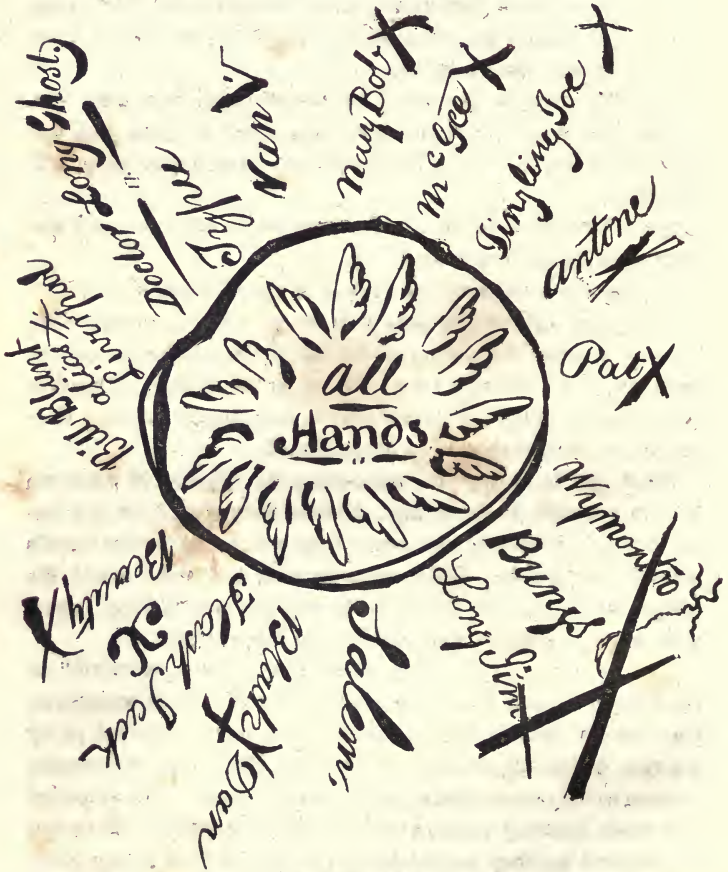 all
Hands
Doctor Long Ghost.
Typee
Van
Navy Bob X
McGee X
Jingling Joe X
Antone X
Pat X
Wymontoo
Bungs X
Long Jim X
Salem.
Black X Dan
Flash Jack X
Beauty X
Bill Blunt
alias X
Liverpool